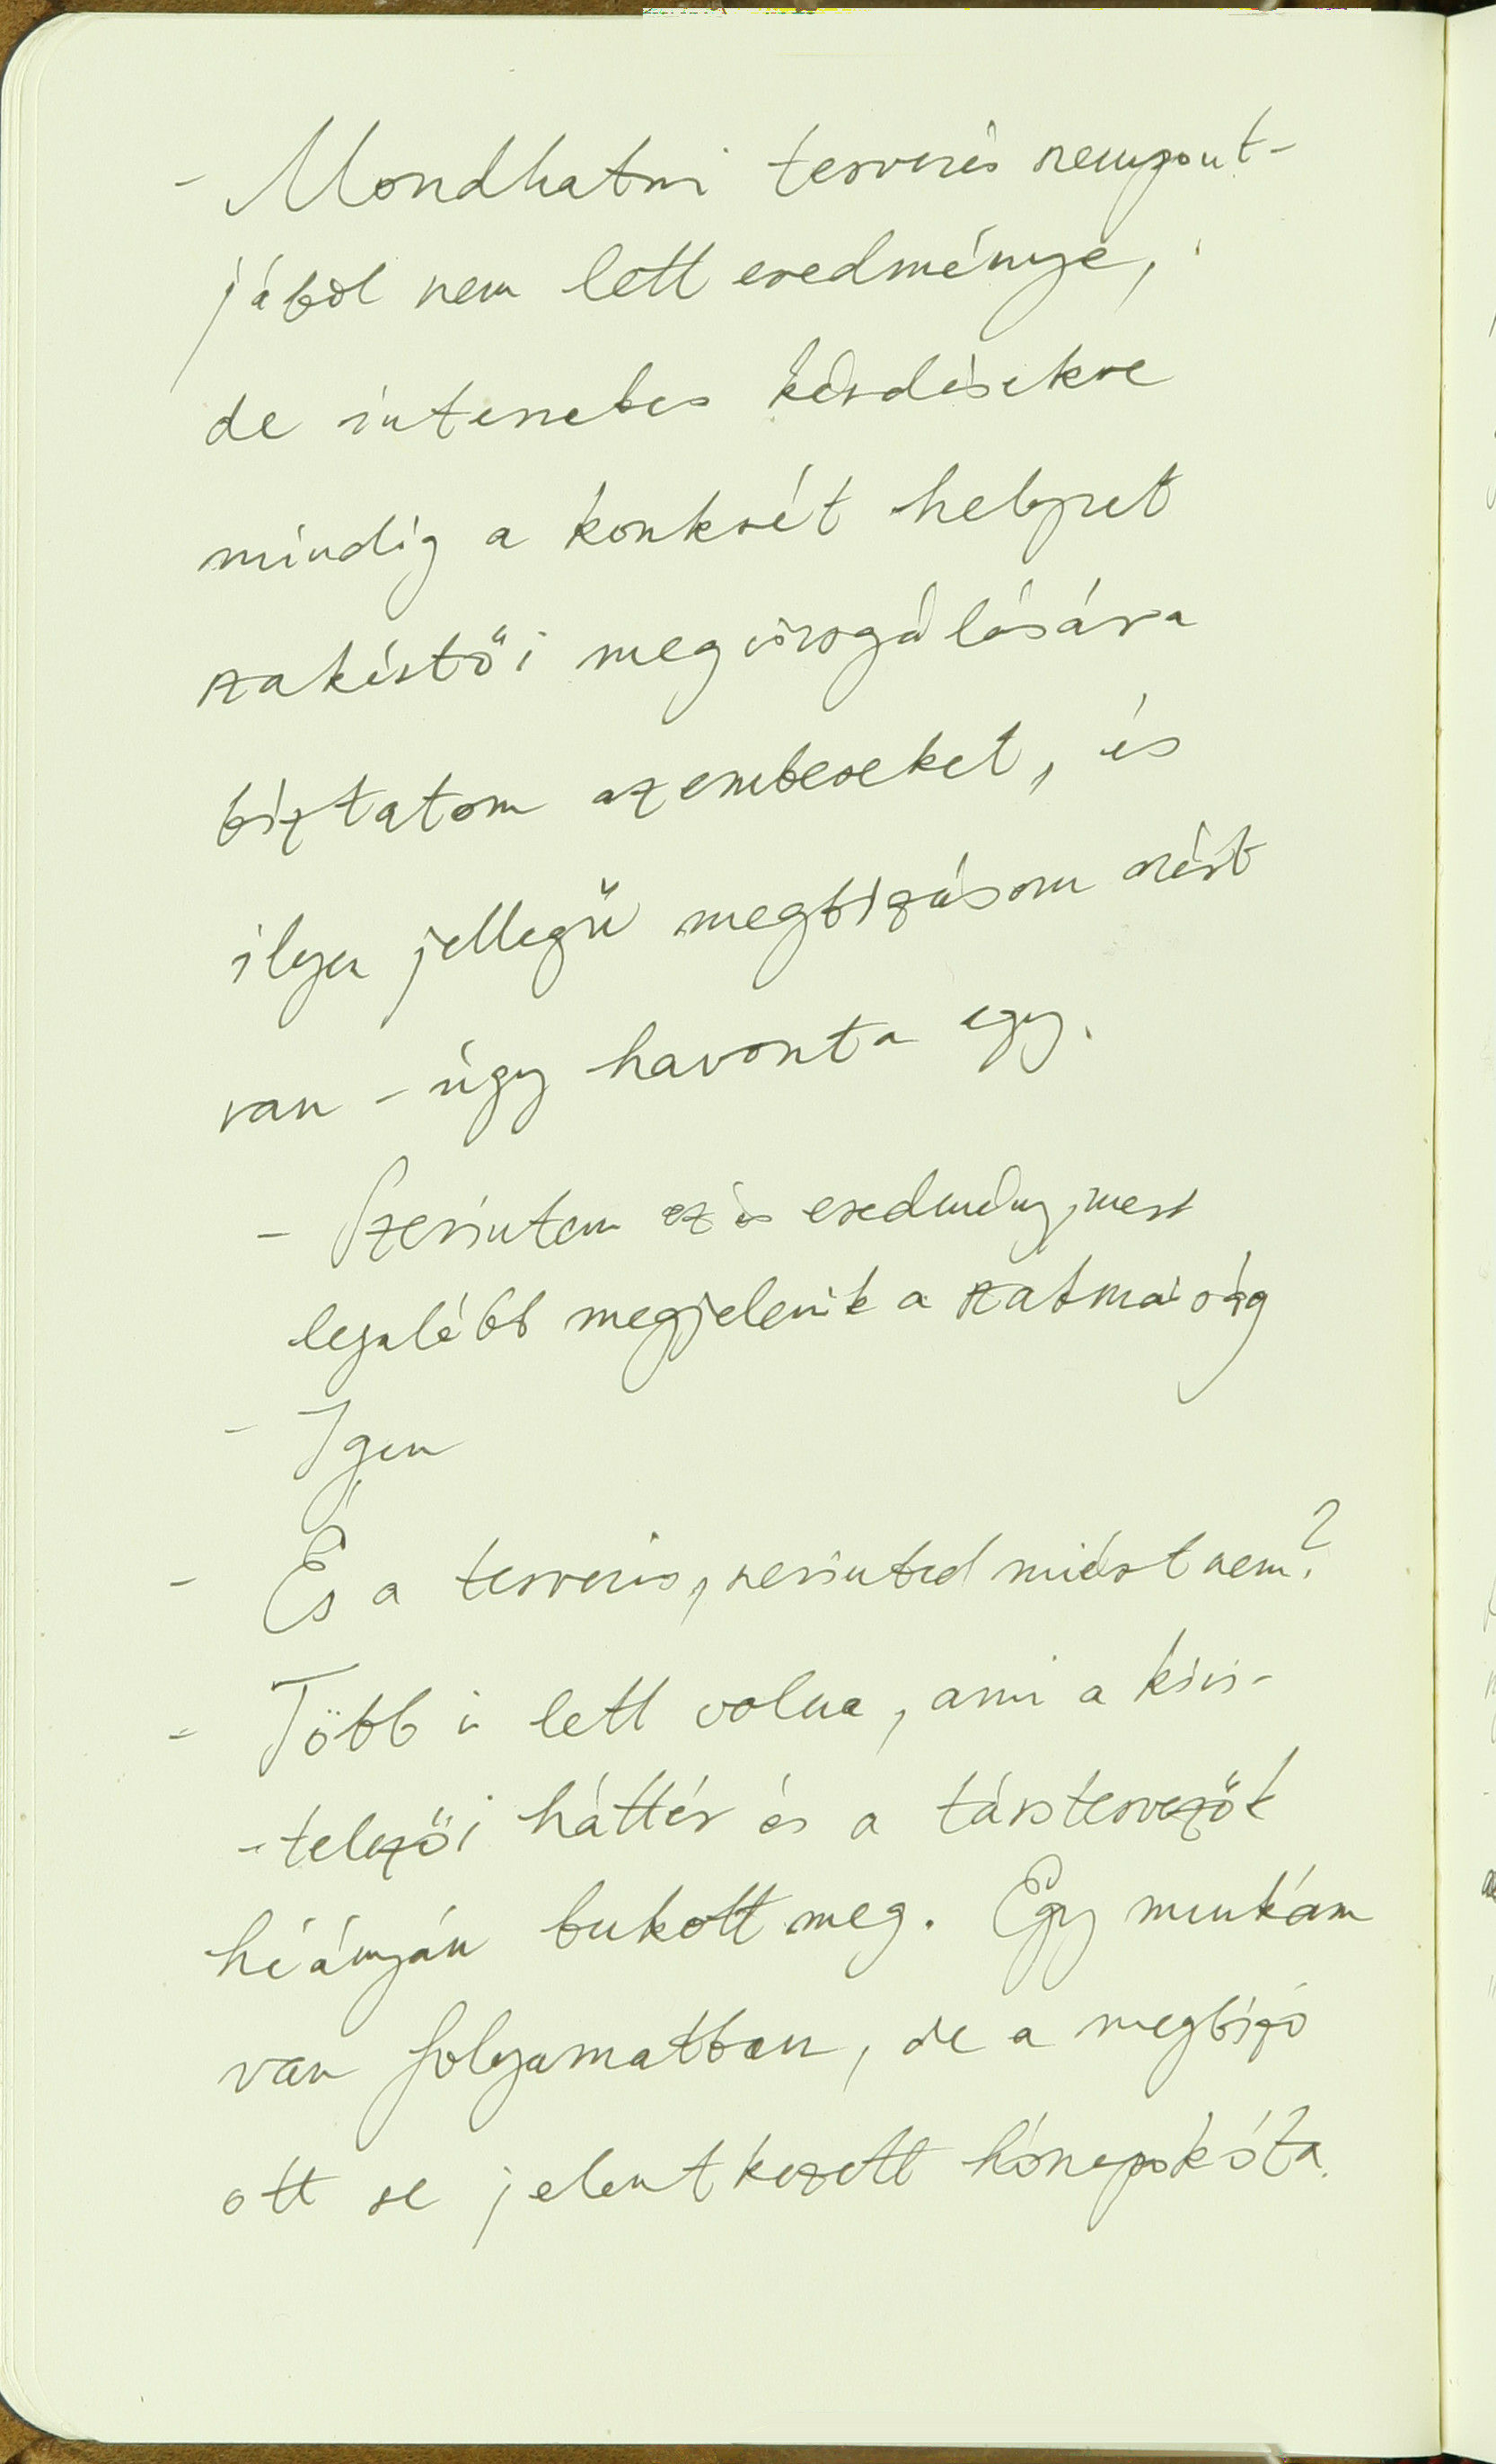 - Mondhatni tervezés szempont-
jából nem lett eredménye,
de internetes kérdésekre
mindig a konkrét helyzet
szakértői megvizsgálására
biztatom az embereket, és
ilyen jellegű megbízásom azért
van - úgy havonta egy.
- Szerintem ez is eredmény, mert
legalább megjelenik a szakmaiság
- Igen
- És a tervezés, szerinted miért nem?
- Több is lett volna, ami a kivi-
- telezői háttér és a társtervezők
hiányán bukott meg. Egy munkám
van folyamatban, de a megbízó
ott se jelentkezett hónapok óta.